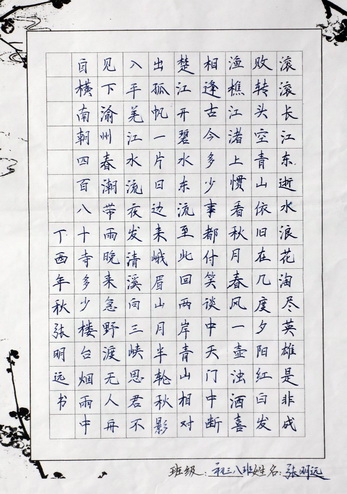 滚滚长江东逝水浪花淘尽英雄是非成
败转头空青山依旧在几度夕阳红白发
渔樵江渚上惯看秋月春风一壶浊酒喜
相逢古今多少事都付笑谈中天门中断
楚江开碧水东流至此回两岸青山相对
出孤帆一片日边来峨眉山月半轮秋影
入平羌江水流夜发清溪向三峡思君不
见下渝州春潮带雨晚来急野渡无人舟
自横南朝四百八十寺多少楼台烟雨中
丁酉年秋张明远书
班级：初三八班姓名：张明远